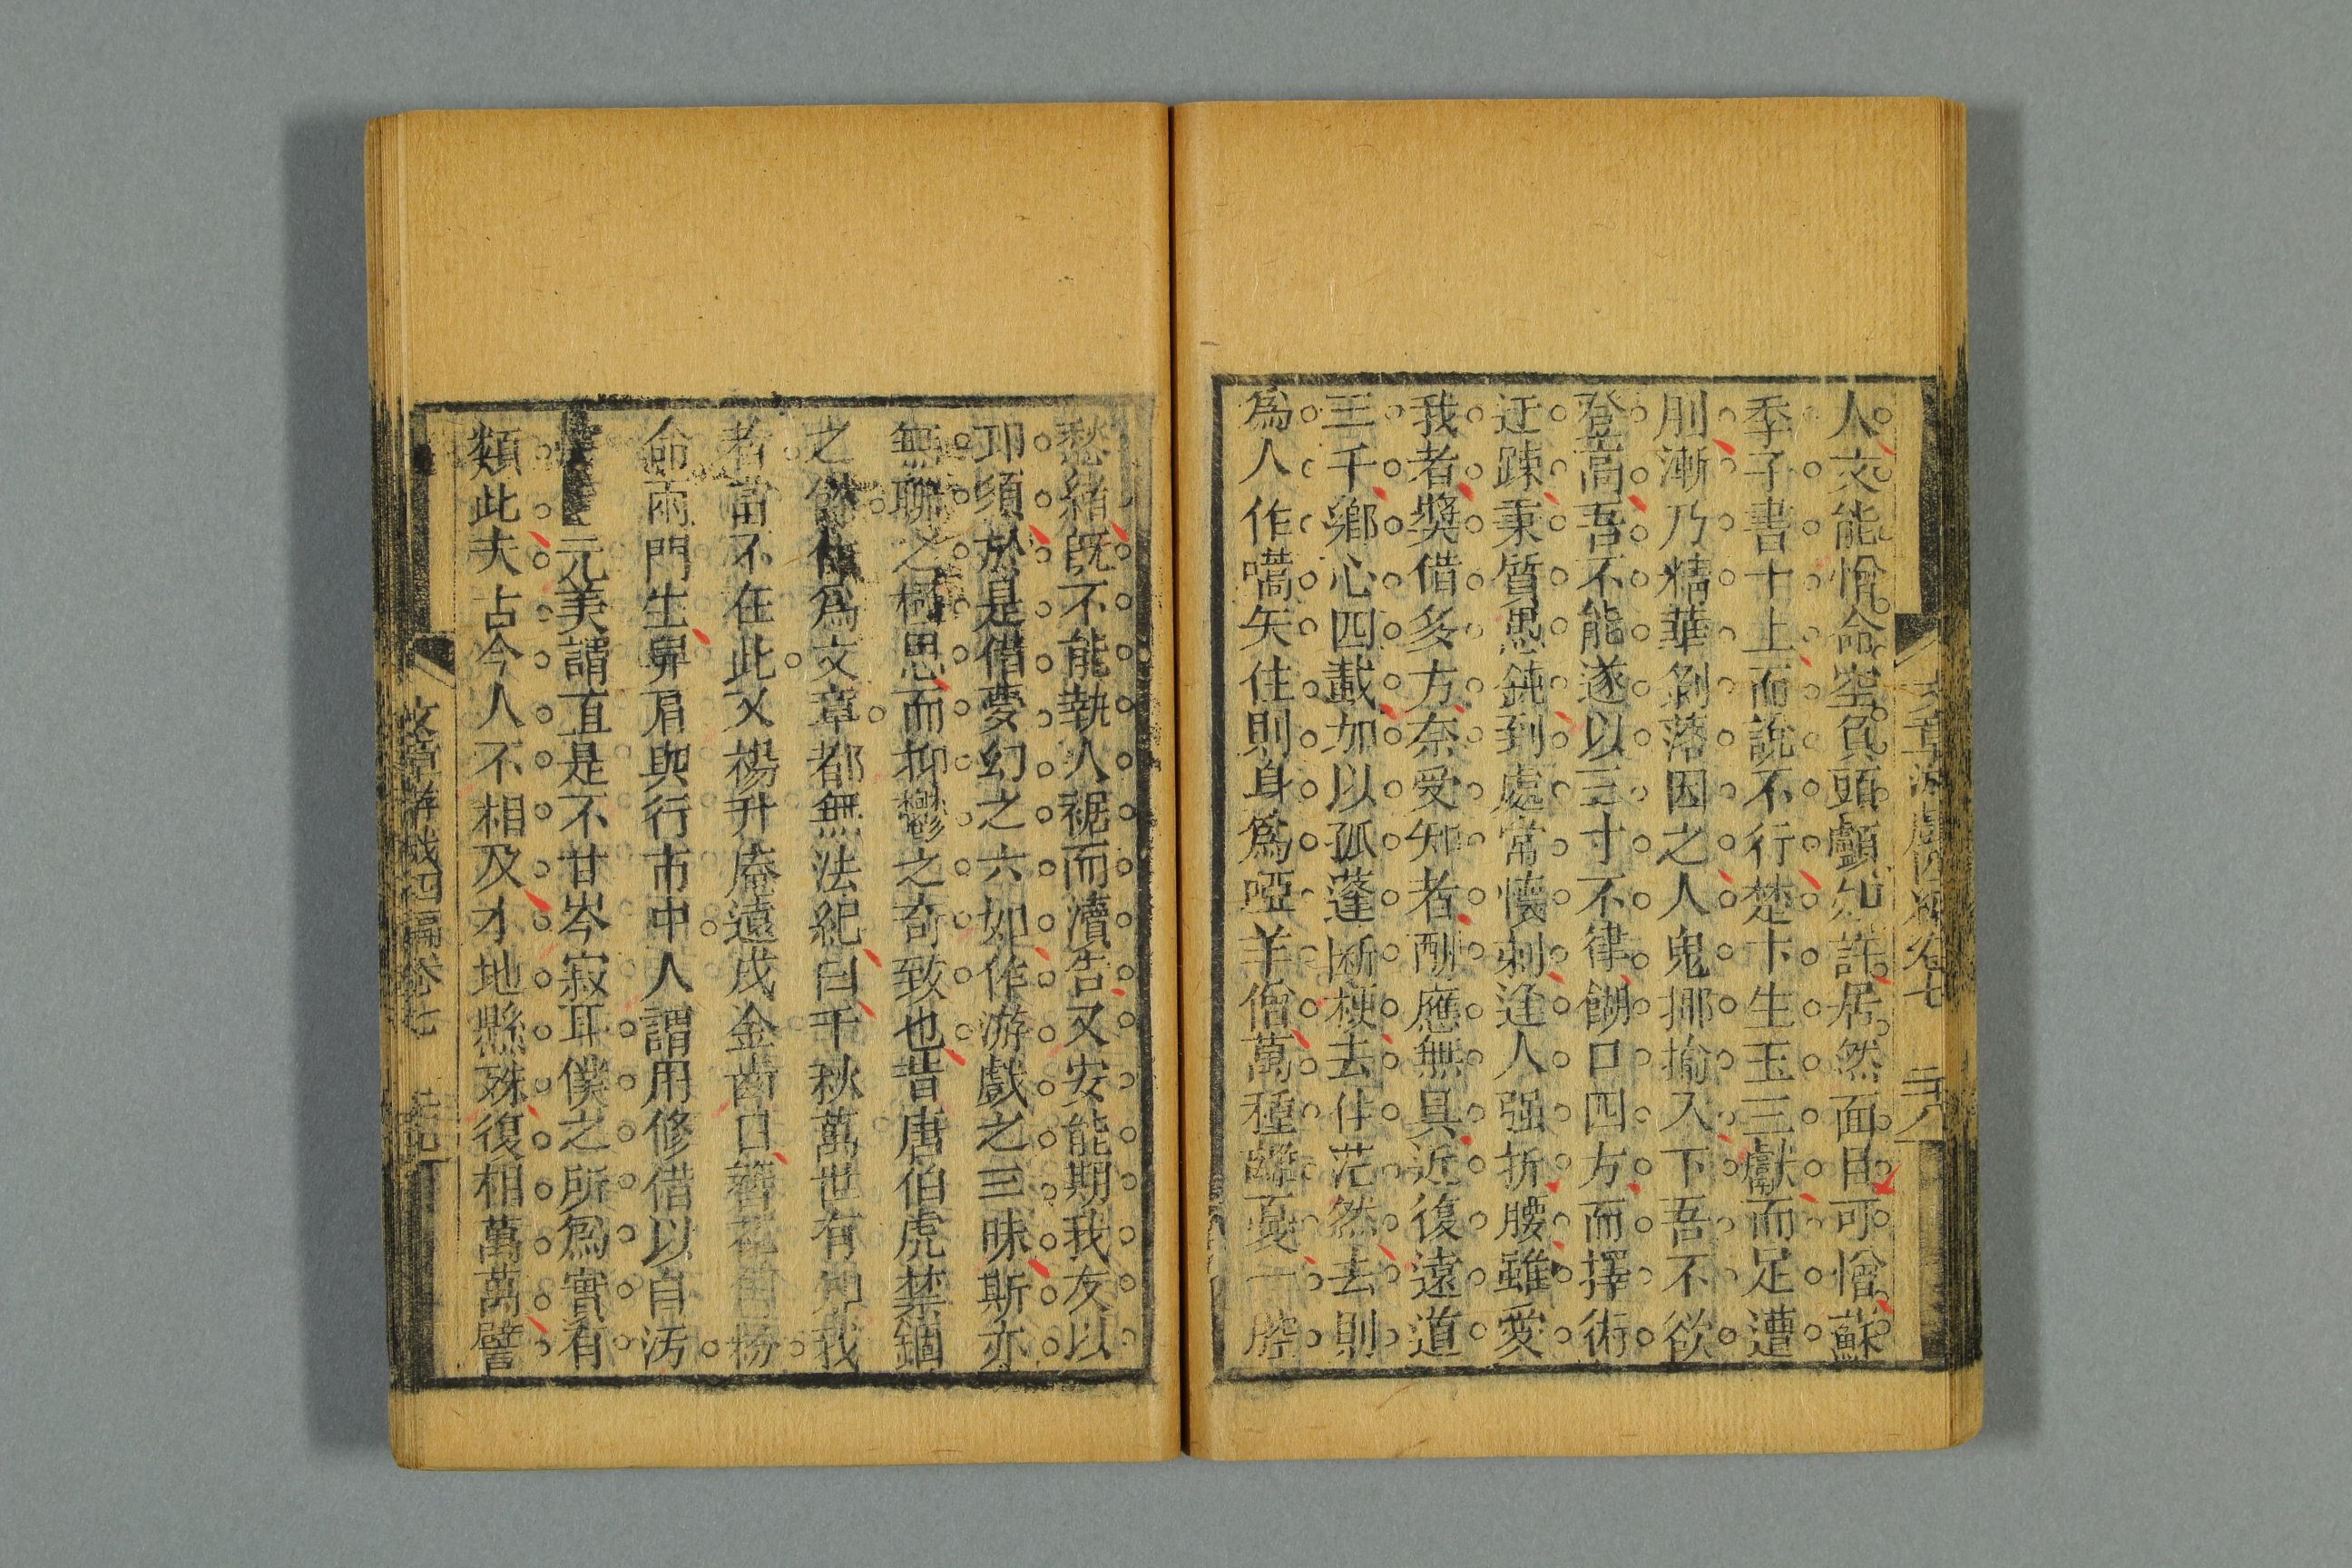 人文能憎命空負頭顱如許居然面目可憎蘇
季子書十上而說不行楚卞生玉三獻而足遭
刖漸乃精華剝落因之人鬼揶揄入下吾不欲
登高吾不能遂以三寸不律餬口四方而擇術
迂踈秉質愚鈍到處常懷刺逢人强折腰雖愛
我者奬借多方奈受知者酬應無具近復遠道
三千鄉心四載加以孤蓬斷梗去住茫然去則
爲人作嚆矢住則身爲啞羊僧萬種離憂一腔
愁緒旣不能執人裾而瀆告又安能期我友以
卭須於是借夢幻之六如作游戲之三昧斯亦
無聊之極思而抑鬱之奇致也昔唐伯虎禁錮
之餘作爲文章都無法紀曰千秋萬世有知我
者當不在此又楊升庵遠戍金齒日簪花
命兩門生舁肩與行市中人謂用修借以自汚
元美謂直是不甘岑寂耳僕之所爲實有
類此夫古今人不相及才地縣殊復相萬萬譬
文章游戲四編卷七 二八
文章游戲四編卷七